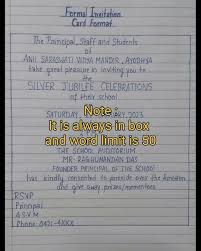 Formal Invitation
Card Format
The Principal, Staff and Students
of
ANIL SARASWATI VIDYA MANDIR, AYODHYA
take great pleasure in inviting you to
the
SILVER JUBILEE CELEBRATIONS
of their school
SATURDAY, 2023
Note :
It is always in box
and word limit is 50
THE SCHOOL AUDITORIUM
MR. RAGHUNANDAN DAS
FOUNDER PRINCIPAL OF THE SCHOOL
has kindly consented to preside over the function
and give away prizes/mementoes
RSVP
Principal
A S V M
Phone: 0421-4XXX